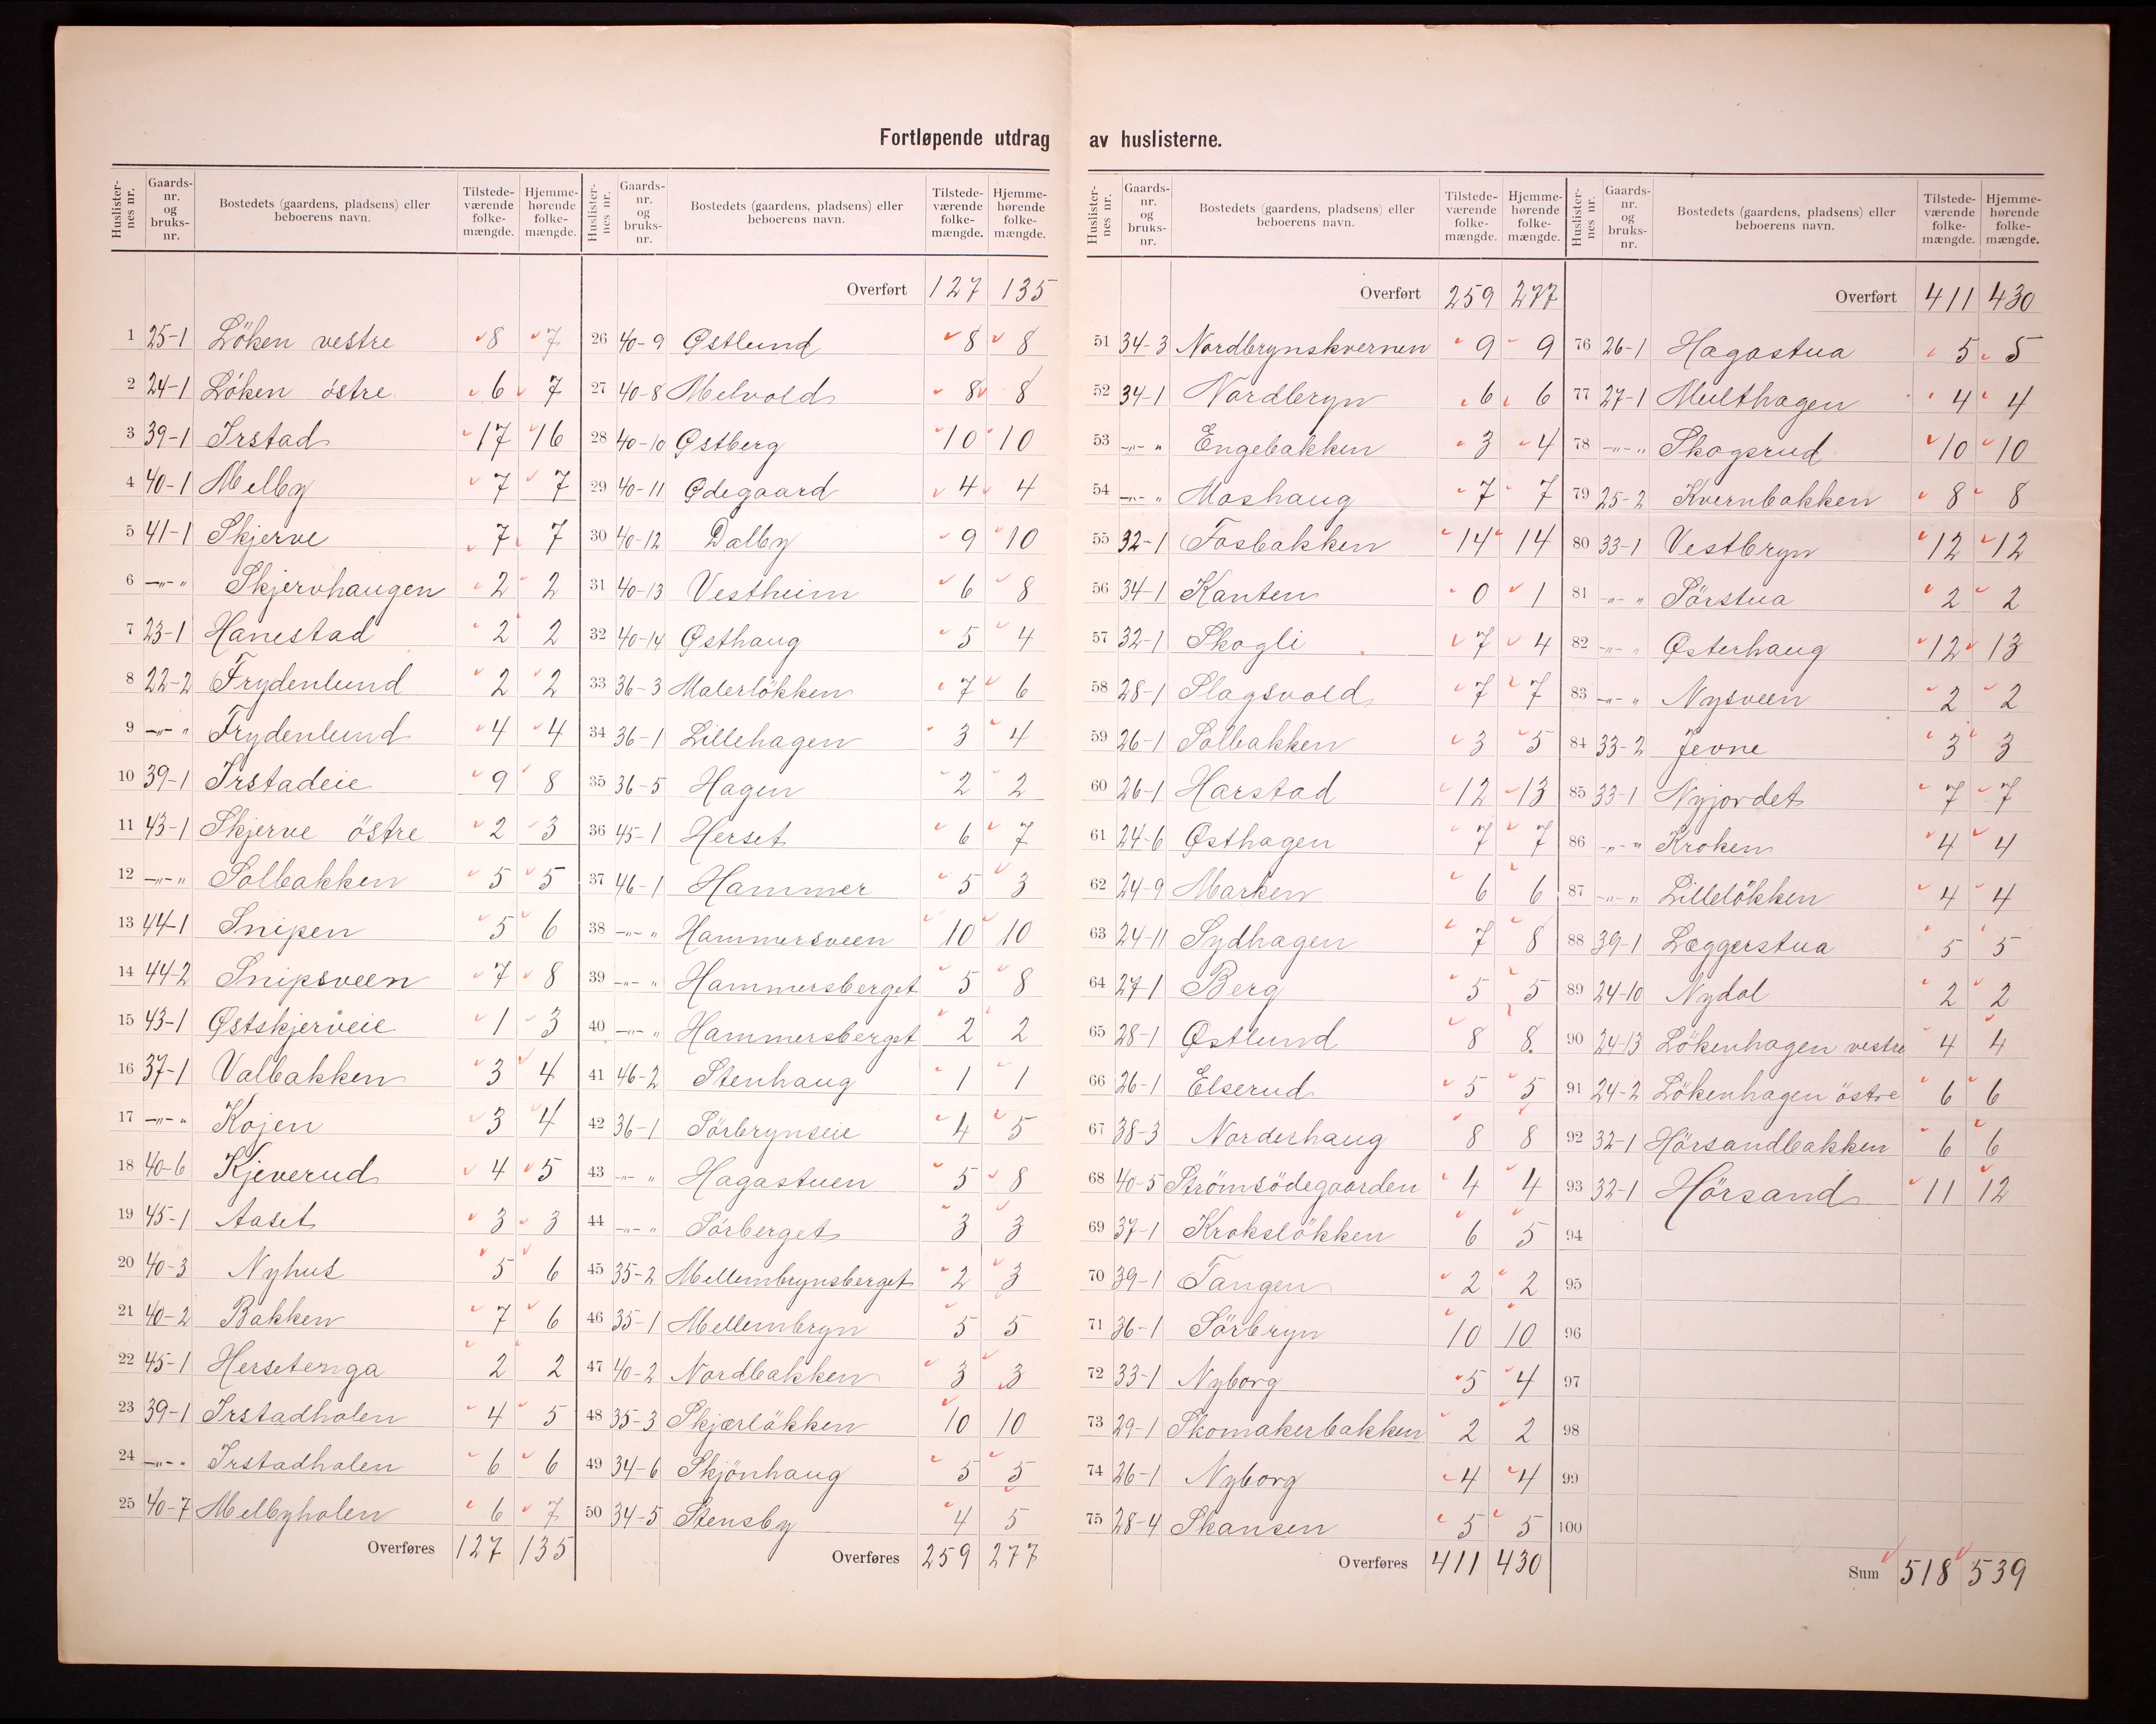 Fortløpende utdrag av huslisterne.
Huslisternes nr. Gaards-nr. og bruks-nr. Bostedets (gaardens, pladsens) eller beboerens navn. Tilstedeværende folkemængde. Hjemmehørende folkemængde.
1 25-1 Löken vestre 8 7
2 24-1 Löken östre 6 7
3 39-1 Irstad 17 16
4 40-1 Melby 7 7
5 41-1 Skjerve 7 7
6 -„- „ Skjervhaugen 2 2
7 23-1 Hanestad 2 2
8 22-2 Frydenlund 2 2
9 -„- „ Frydenlund 4 4
10 39-1 Irstadeie 9 8
11 43-1 Skjerve östre 2 3
12 -„- „ Solbakken 5 5
13 44-1 Snipen 5 6
14 44-2 Snipsveen 7 8
15 43-1 Østskjerveie 1 3
16 37-1 Valbakken 3 4
17 -„- „ Kojen 3 4
18 40-6 Kjeverud 4 5
19 45-1 Aaset 3 3
20 40-3 Nyhus 5 6
21 40-2 Bakken 7 6
22 45-1 Hersetenga 2 2
23 39-1 Irstadholen 4 5
24 -„- „ Irstadholen 6 6
25 40-7 Melbyholen 6 7
Overføres 127 135
Huslisternes nr. Gaards-nr. og bruks-nr. Bostedets (gaardens, pladsens) eller beboerens navn. Tilstedeværende folkemængde. Hjemmehørende folkemængde.
Overført 127 135
26 40-9 Østlund 8 8
27 40-8 Melvold 8 8
28 40-10 Østberg 10 10
29 40-11 Ødegaard 4 4
30 40-12 Dalby 9 10
31 40-13 Vestheim 6 8
32 40-14 Østhaug 5 4
33 36-3 Malerlökken 7 6
34 36-1 Lillehagen 3 4
35 36-5 Hagen 2 2
36 45-1 Herset 6 7
37 46-1 Hammer 5 3
38 -„- „ Hammersveen 10 10
39 -„- „ Hammersberget 5 8
40 -„- „ Hammersberget 2 2
41 46-2 Stenhaug 1 1
42 36-1 Sörbrynseie 4 5
43 -„- „ Hagastuen 5 8
44 -„- „ Sörberget 3 3
45 35-2 Mellembrynsberget 2 3
46 35-1 Mellembryn 5 5
47 40-2 Nordbakken 3 3
48 35-3 Skjærlökken 10 10
49 34-6 Skjönhaug 5 5
50 34-5 Stensby 4 5
Overføres 259 277
Huslisternes nr. Gaards-nr. og bruks-nr. Bostedets (gaardens, pladsens) eller beboerens navn. Tilstedeværende folkemængde. Hjemmehørende folkemængde.
Overført 259 277
51 34-3 Nordbrynskvernen 9 9
52 34-1 Nordbryn 6 6
53 -„- „ Engebakken 3 4
54 -„- „ Moshaug 7 7
55 32-1 Fosbakken 14 14
56 34-1 Kanten 0 1
57 32-1 Skogli 7 4
58 28-1 Slagsvold 7 7
59 26-1 Solbakken 3 5
60 26-1 Harstad 12 13
61 24-6 Østhagen 7 7
62 24-9 Marken 6 6
63 24-11 Sydhagen 7 8
64 27-1 Berg 5 5
65 28-1 Østlund 8 8
66 26-1 Elserud 5 5
67 38-3 Norderhaug 8 8
68 40-5 Strömsödegaarden 4 4
69 37-1 Krokslökken 6 5
70 39-1 Tangen 2 2
71 36-1 Sörbryn 10 10
72 33-1 Nyborg 5 4
73 29-1 Skomakerbakken 2 2
74 26-1 Nyborg 4 4
75 28-4 Skansen 5 5
Overføres 411 430
Huslisternes nr. Gaards-nr. og bruks-nr. Bostedets (gaardens, pladsens) eller beboerens navn. Tilstedeværende folkemængde. Hjemmehørende folkemængde.
Overført 411 430
76 26-1 Hagastua 5 5
77 27-1 Multhagen 4 4
78 -„- „ Skogsrud 10 10
79 25-2 Kvernbakken 8 8
80 33-1 Vestbryn 12 12
81 -„- „ Sörstua 2 2
82 -„- „ Østerhaug 12 13
83 -„- „ Nysveen 2 2
84 33-2 Jevne 3 3
85 33-1 Nyjordet 7 7
86 -„- „ Kroken 4 4
87 -„- „ Lillelökken 4 4
88 39-1 Læggerstua 5 5
89 24-10 Nydal 2 2
90 24-13 Lökenhagen vestre 4 4
91 24-2 Lökenhagen östre 6 6
92 32-1 Hörsandbakken 6 6
93 32-1 Hörsand 11 12
94
95
96
97
98
99
100
Sum 518 539